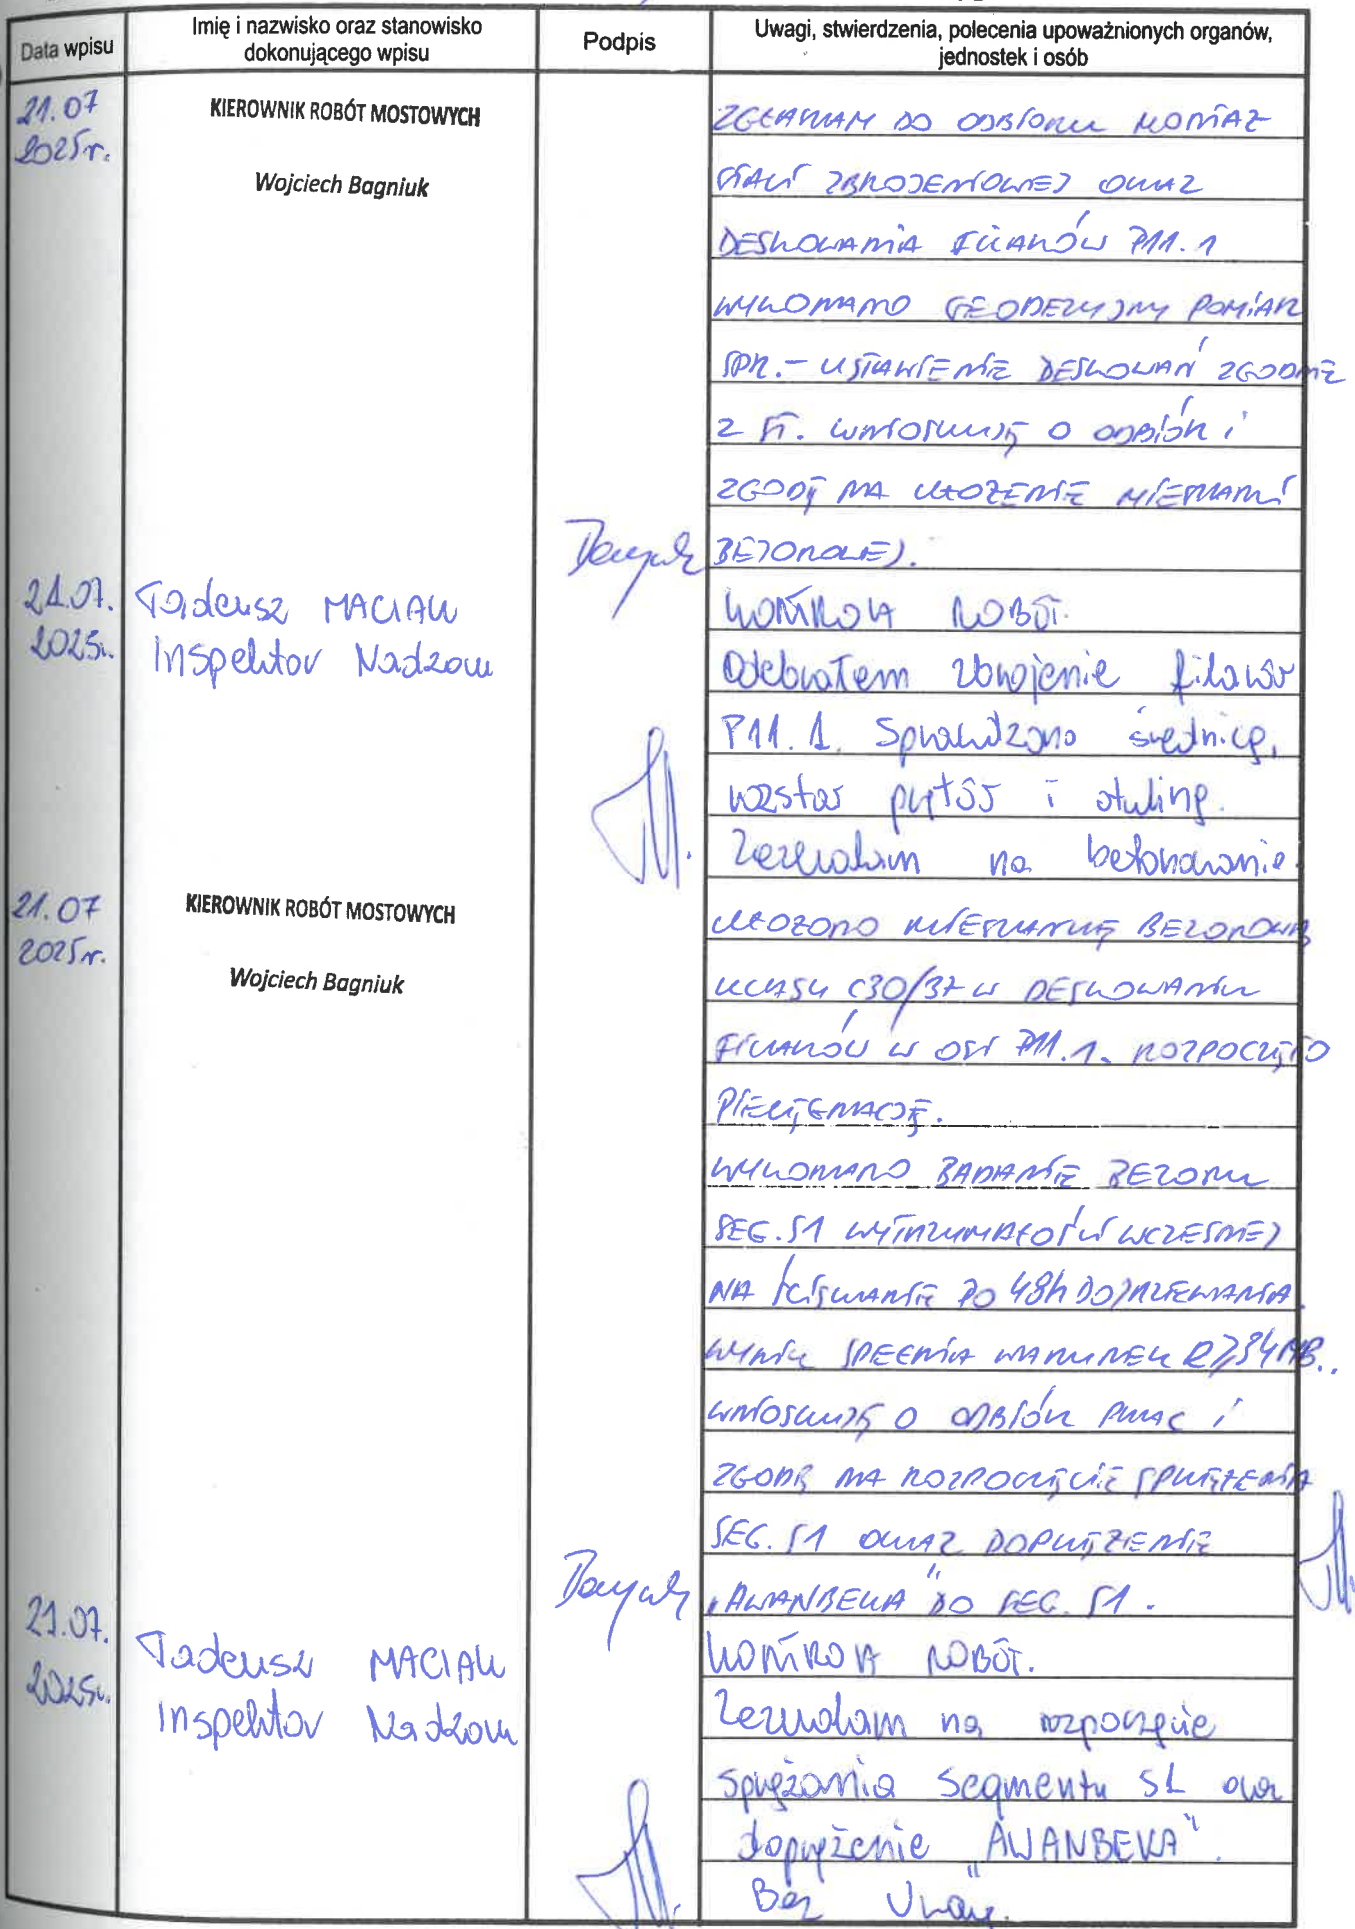 Data wpisu
Imię i nazwisko oraz stanowisko
dokonującego wpisu
Podpis
Uwagi, stwierdzenia, polecenia upoważnionych organów,
jednostek i osób
21.07
2025r.
KIEROWNIK ROBÓT MOSTOWYCH
Wojciech Bagniuk
ZGŁASZAM DO ODBIORU MONTAŻ
STALI ZBROJENIOWEJ ORAZ
DESKOWANIA FILARÓW P11.1
WYKONANO GEODEZYJNY POMIAR
SPR. - USTAWIENIE DESKOWAŃ ZGODNE
Z PT. WNIOSKUJĘ O ODBIÓR I
ZGODĘ NA UŁOŻENIE MIESZANKI
BETONOWEJ.
21.07.
2025r.
Tadeusz MACIAK
Inspektor Nadzoru
KONTROLA ROBÓT.
Odebrałem zbrojenie filarów
P11.1. Sprawdzono średnicę,
rozstaw prętów i otulinę.
Zezwalam na betonowanie.
21.07
2025r.
KIEROWNIK ROBÓT MOSTOWYCH
Wojciech Bagniuk
UŁOŻONO MIESZANKĘ BETONOWĄ
KLASY C30/37 W DESKOWANIU
FILARÓW W OSI P11.1. ROZPOCZĘTO
PIELĘGNACJĘ.
WYKONANO BADANIE BETONU
SEG. S1 WYTRZYMAŁOŚCI WCZESNEJ
NA ŚCISKANIE PO 48h DOJRZEWANIA.
WYNIK SPEŁNIA WARUNEK R≥34
WNIOSKUJĘ O ODBIÓR PRAC I
ZGODĘ NA ROZPOCZĘCIE SPRĘŻENIA
SEG. S1 ORAZ DOPRĘŻENIE
„AWANBEKA" DO SEG. S1.
21.07.
2025r.
Tadeusz MACIAK
Inspektor Nadzoru
KONTROLA ROBÓT.
Zezwalam na rozpoczęcie
sprężania segmentu S1 oraz
doprężenie „AWANBEKA".
Bez Uwag.